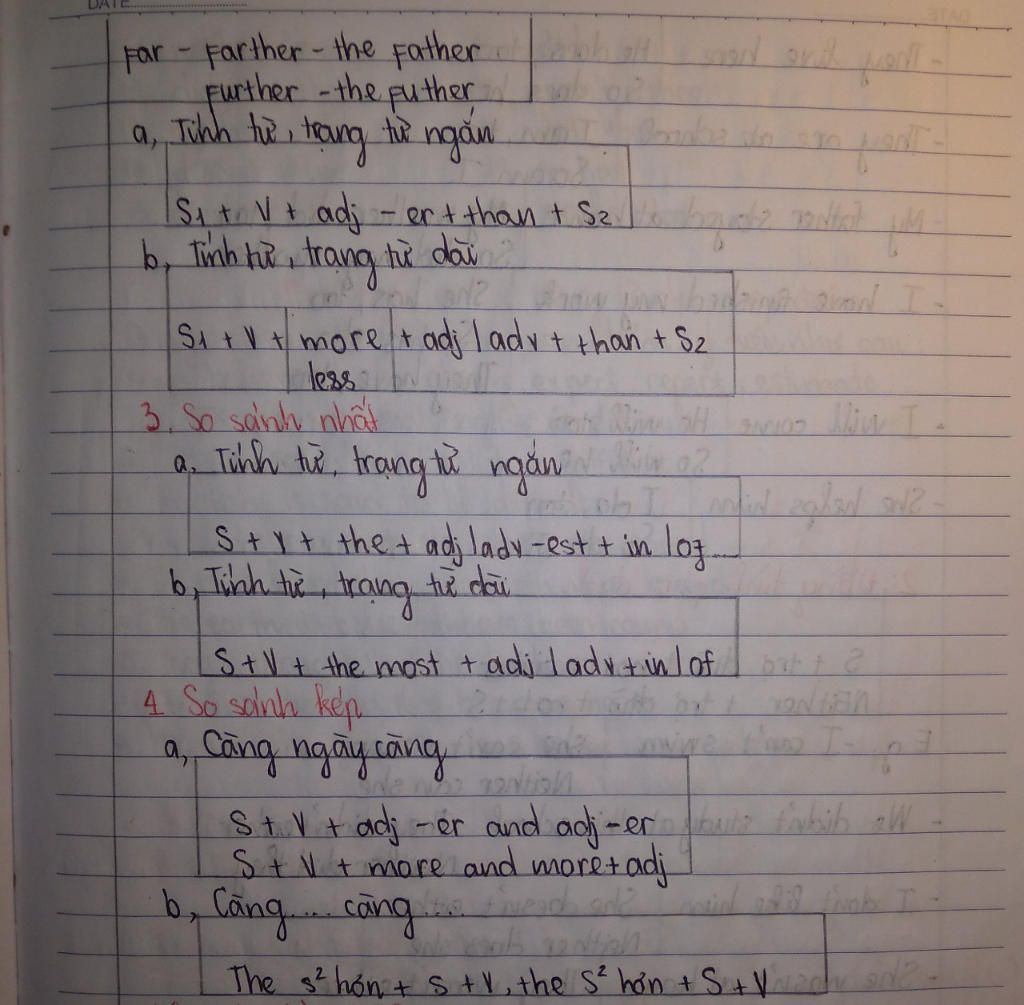 DATE
Far - Farther - the Father
Further - the Futher
a, Tính từ, trạng từ ngắn
S1 + V + adj - er + than + S2
b, Tính từ, trạng từ dài
S1 + V + more + adj / adv + than + S2
less
3. So sánh nhất
a, Tính từ, trạng từ ngắn
S + V + the + adj / adv - est + in / of....
b, Tính từ, trạng từ dài
S + V + the most + adj / adv + in / of
4 So sánh kép
a, Càng ngày càng
S + V + adj - er and adj - er
S + V + more and more + adj
b, Càng.... càng....
The s² hơn + S + V, the S² hơn + S + V